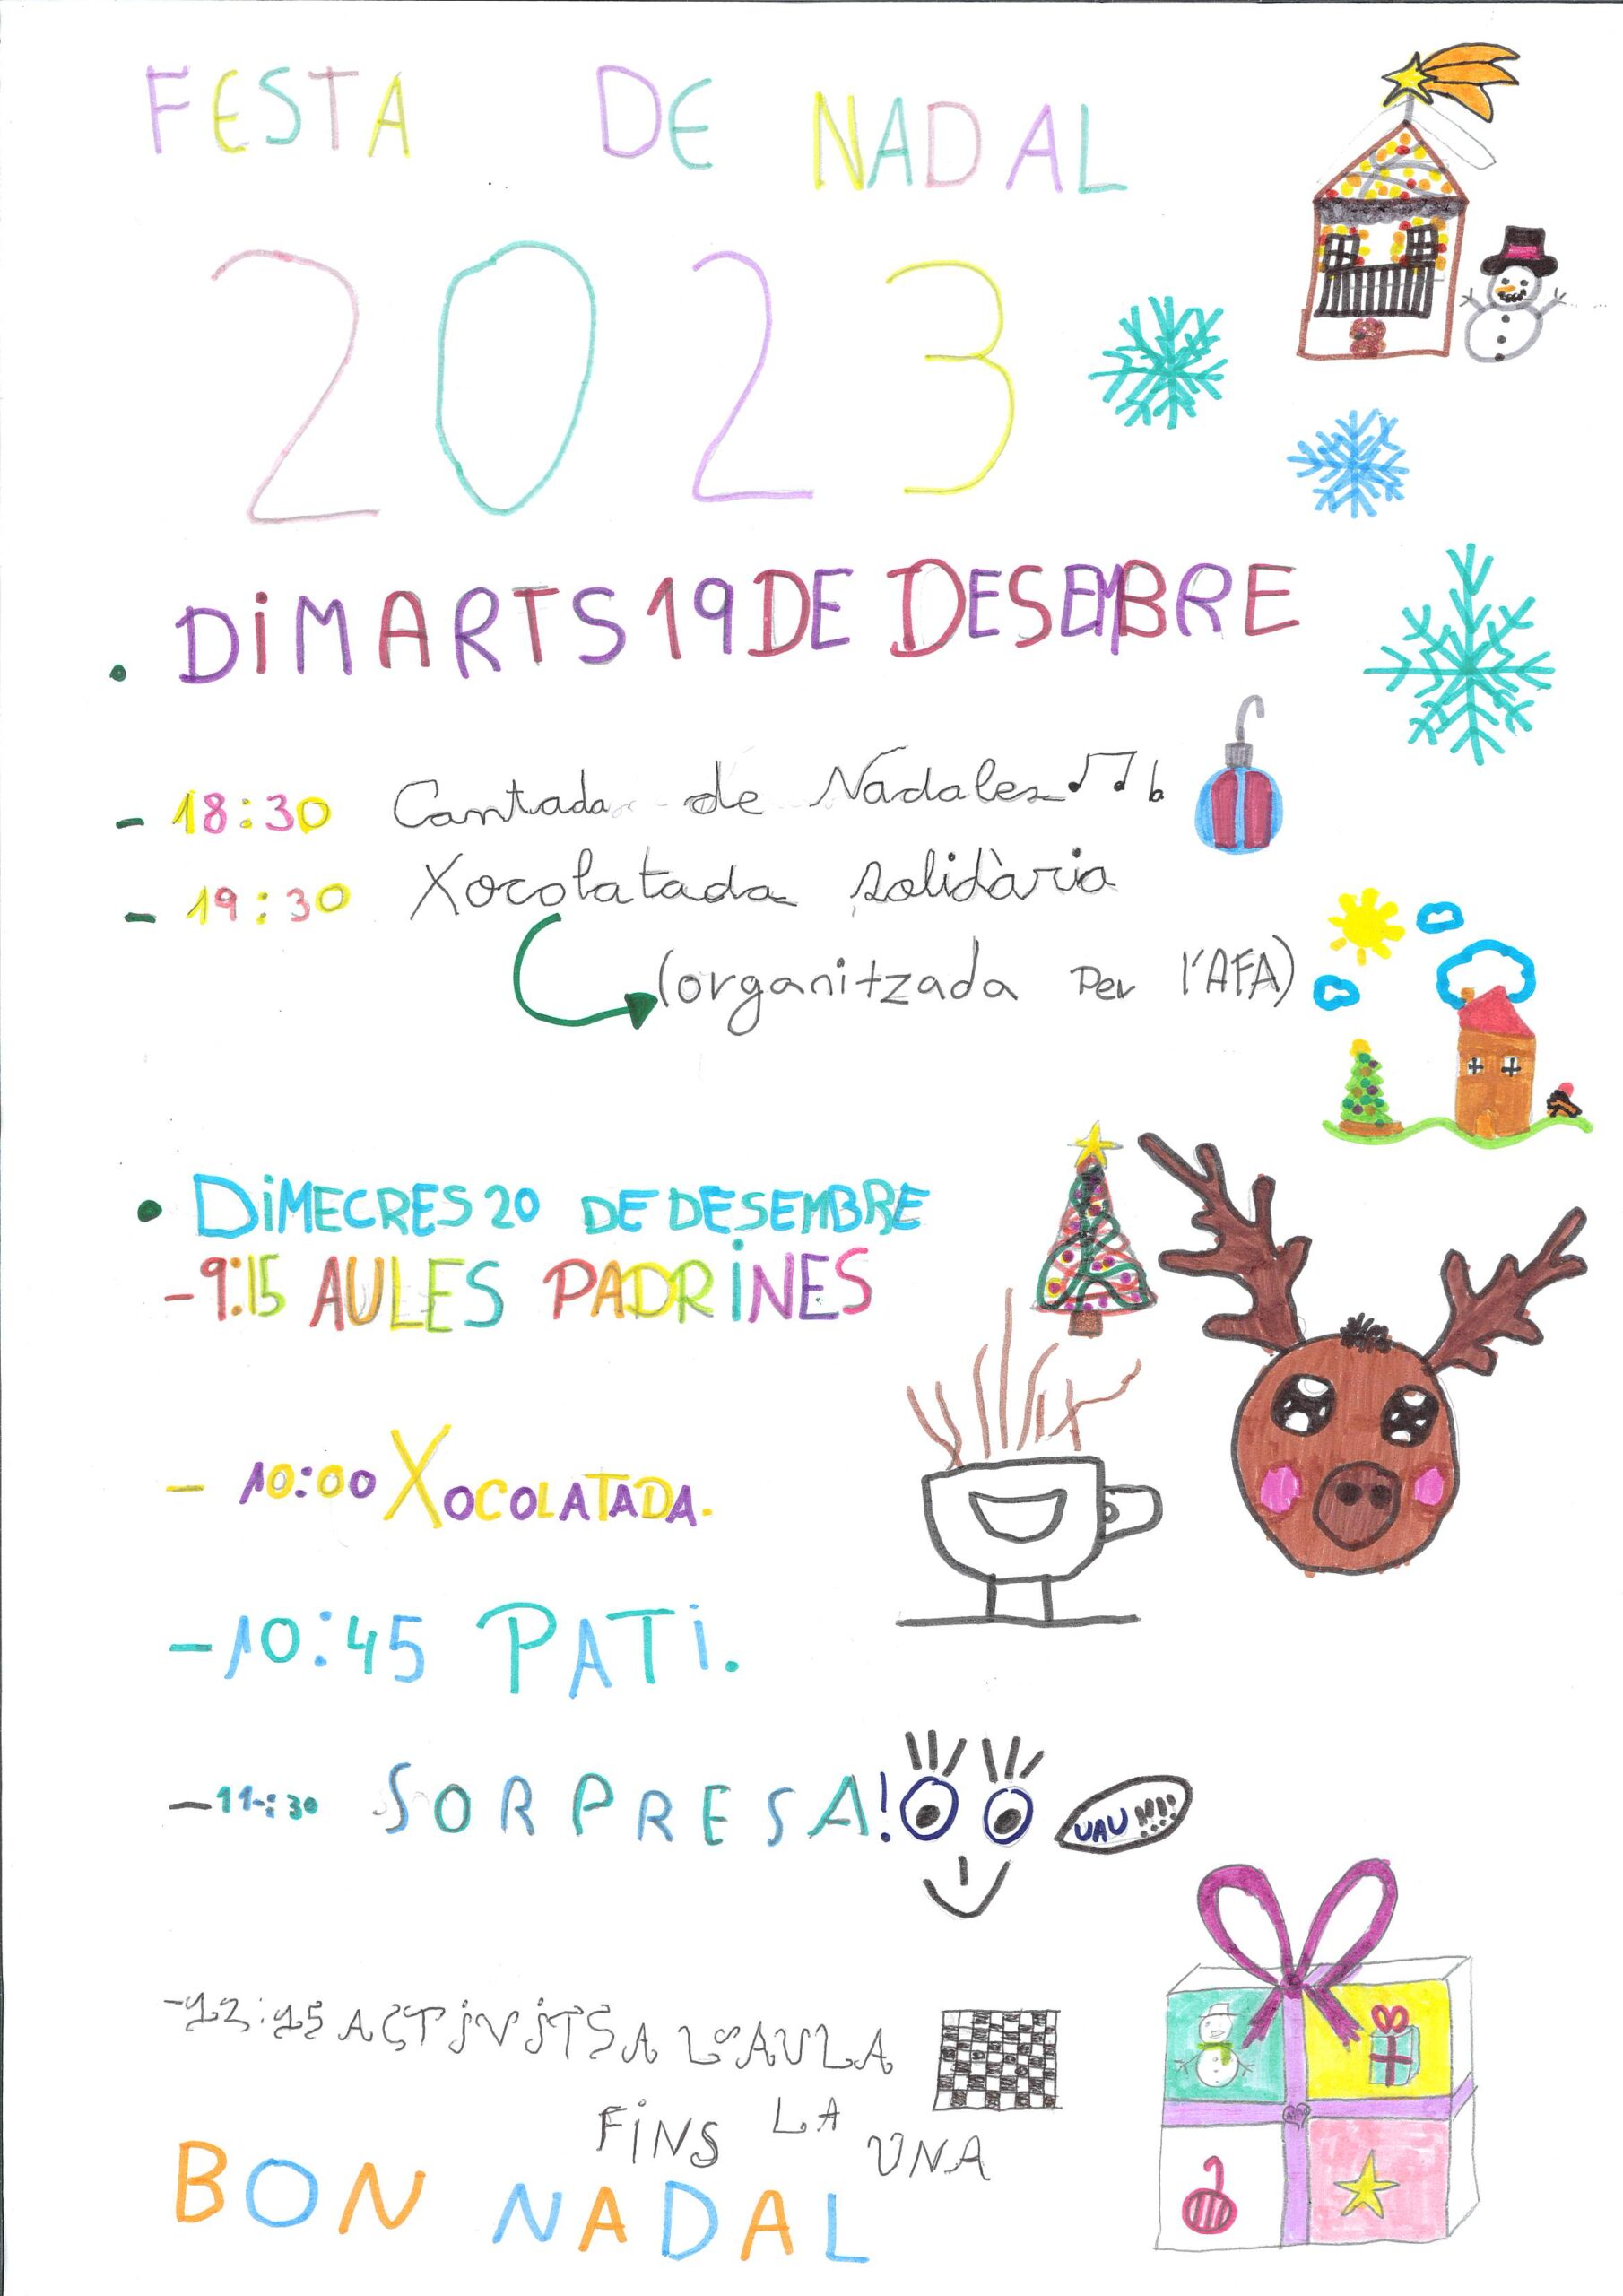 FESTA DE NADAL
2023
• DiMARTS 19 DE DESEMBRE
- 18:30 Cantada de Nadales
- 19:30 Xocolatada solidària
(organitzada per l'AFA)
• DiMECRES 20 DE DESEMBRE
- 9:15 AULES PADRiNES
- 10:00 XOCOLATADA.
- 10:45 PATi.
- 11:30 SORPRESA!
UAU!!!!
- 12:15 ACTiViTS A L'AULA
FiNS LA UNA
BON NADAL